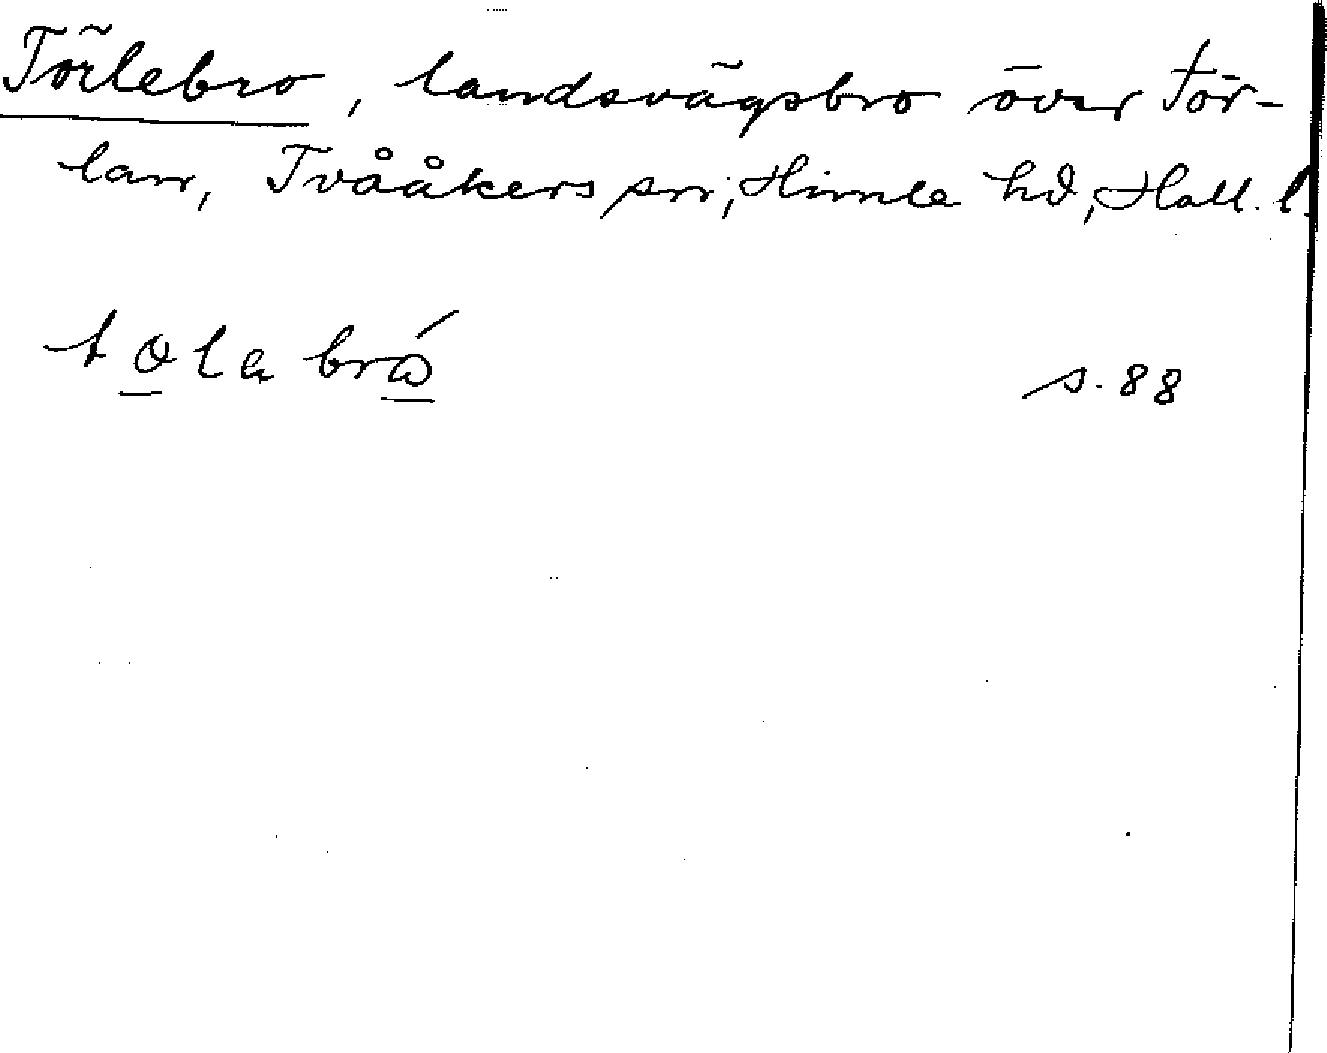 Törlebro, landsvägsbro över Tör-
lan, Tvååkers sn, Himle hd, Hall. l.
s. 88